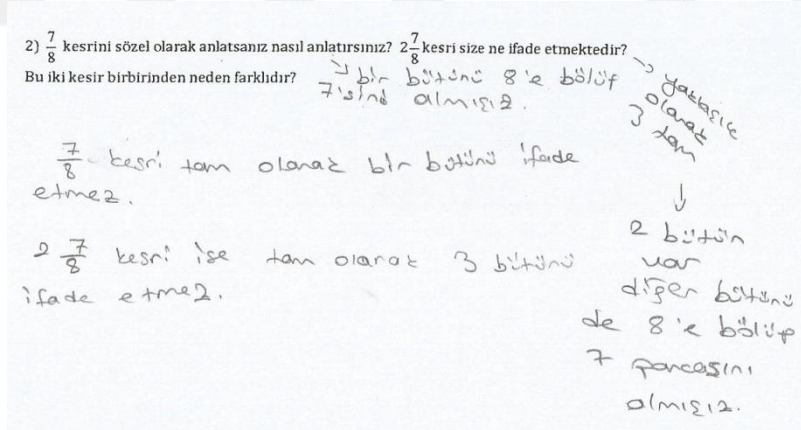 2) 7/8 kesrini sözel olarak anlatsanız nasıl anlatırsınız? 2 7/8 kesri size ne ifade etmektedir?
Bu iki kesir birbirinden neden farklıdır?
→ bir bütünü 8'e bölüp
7'sini almışız.
7/8 kesri tam olarak bir bütünü ifade
etmez.
2 7/8 kesri ise tam olarak 3 bütünü
ifade etmez.
→ yaklaşık
olarak
3 tam
↓
2 bütün
var
diğer bütünü
de 8'e bölüp
7 parçasını
almışız.